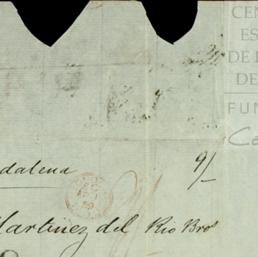 CEN
ES
DE
DE
FUN
Ca
dalena 9/-
Martinez del Rio Bros